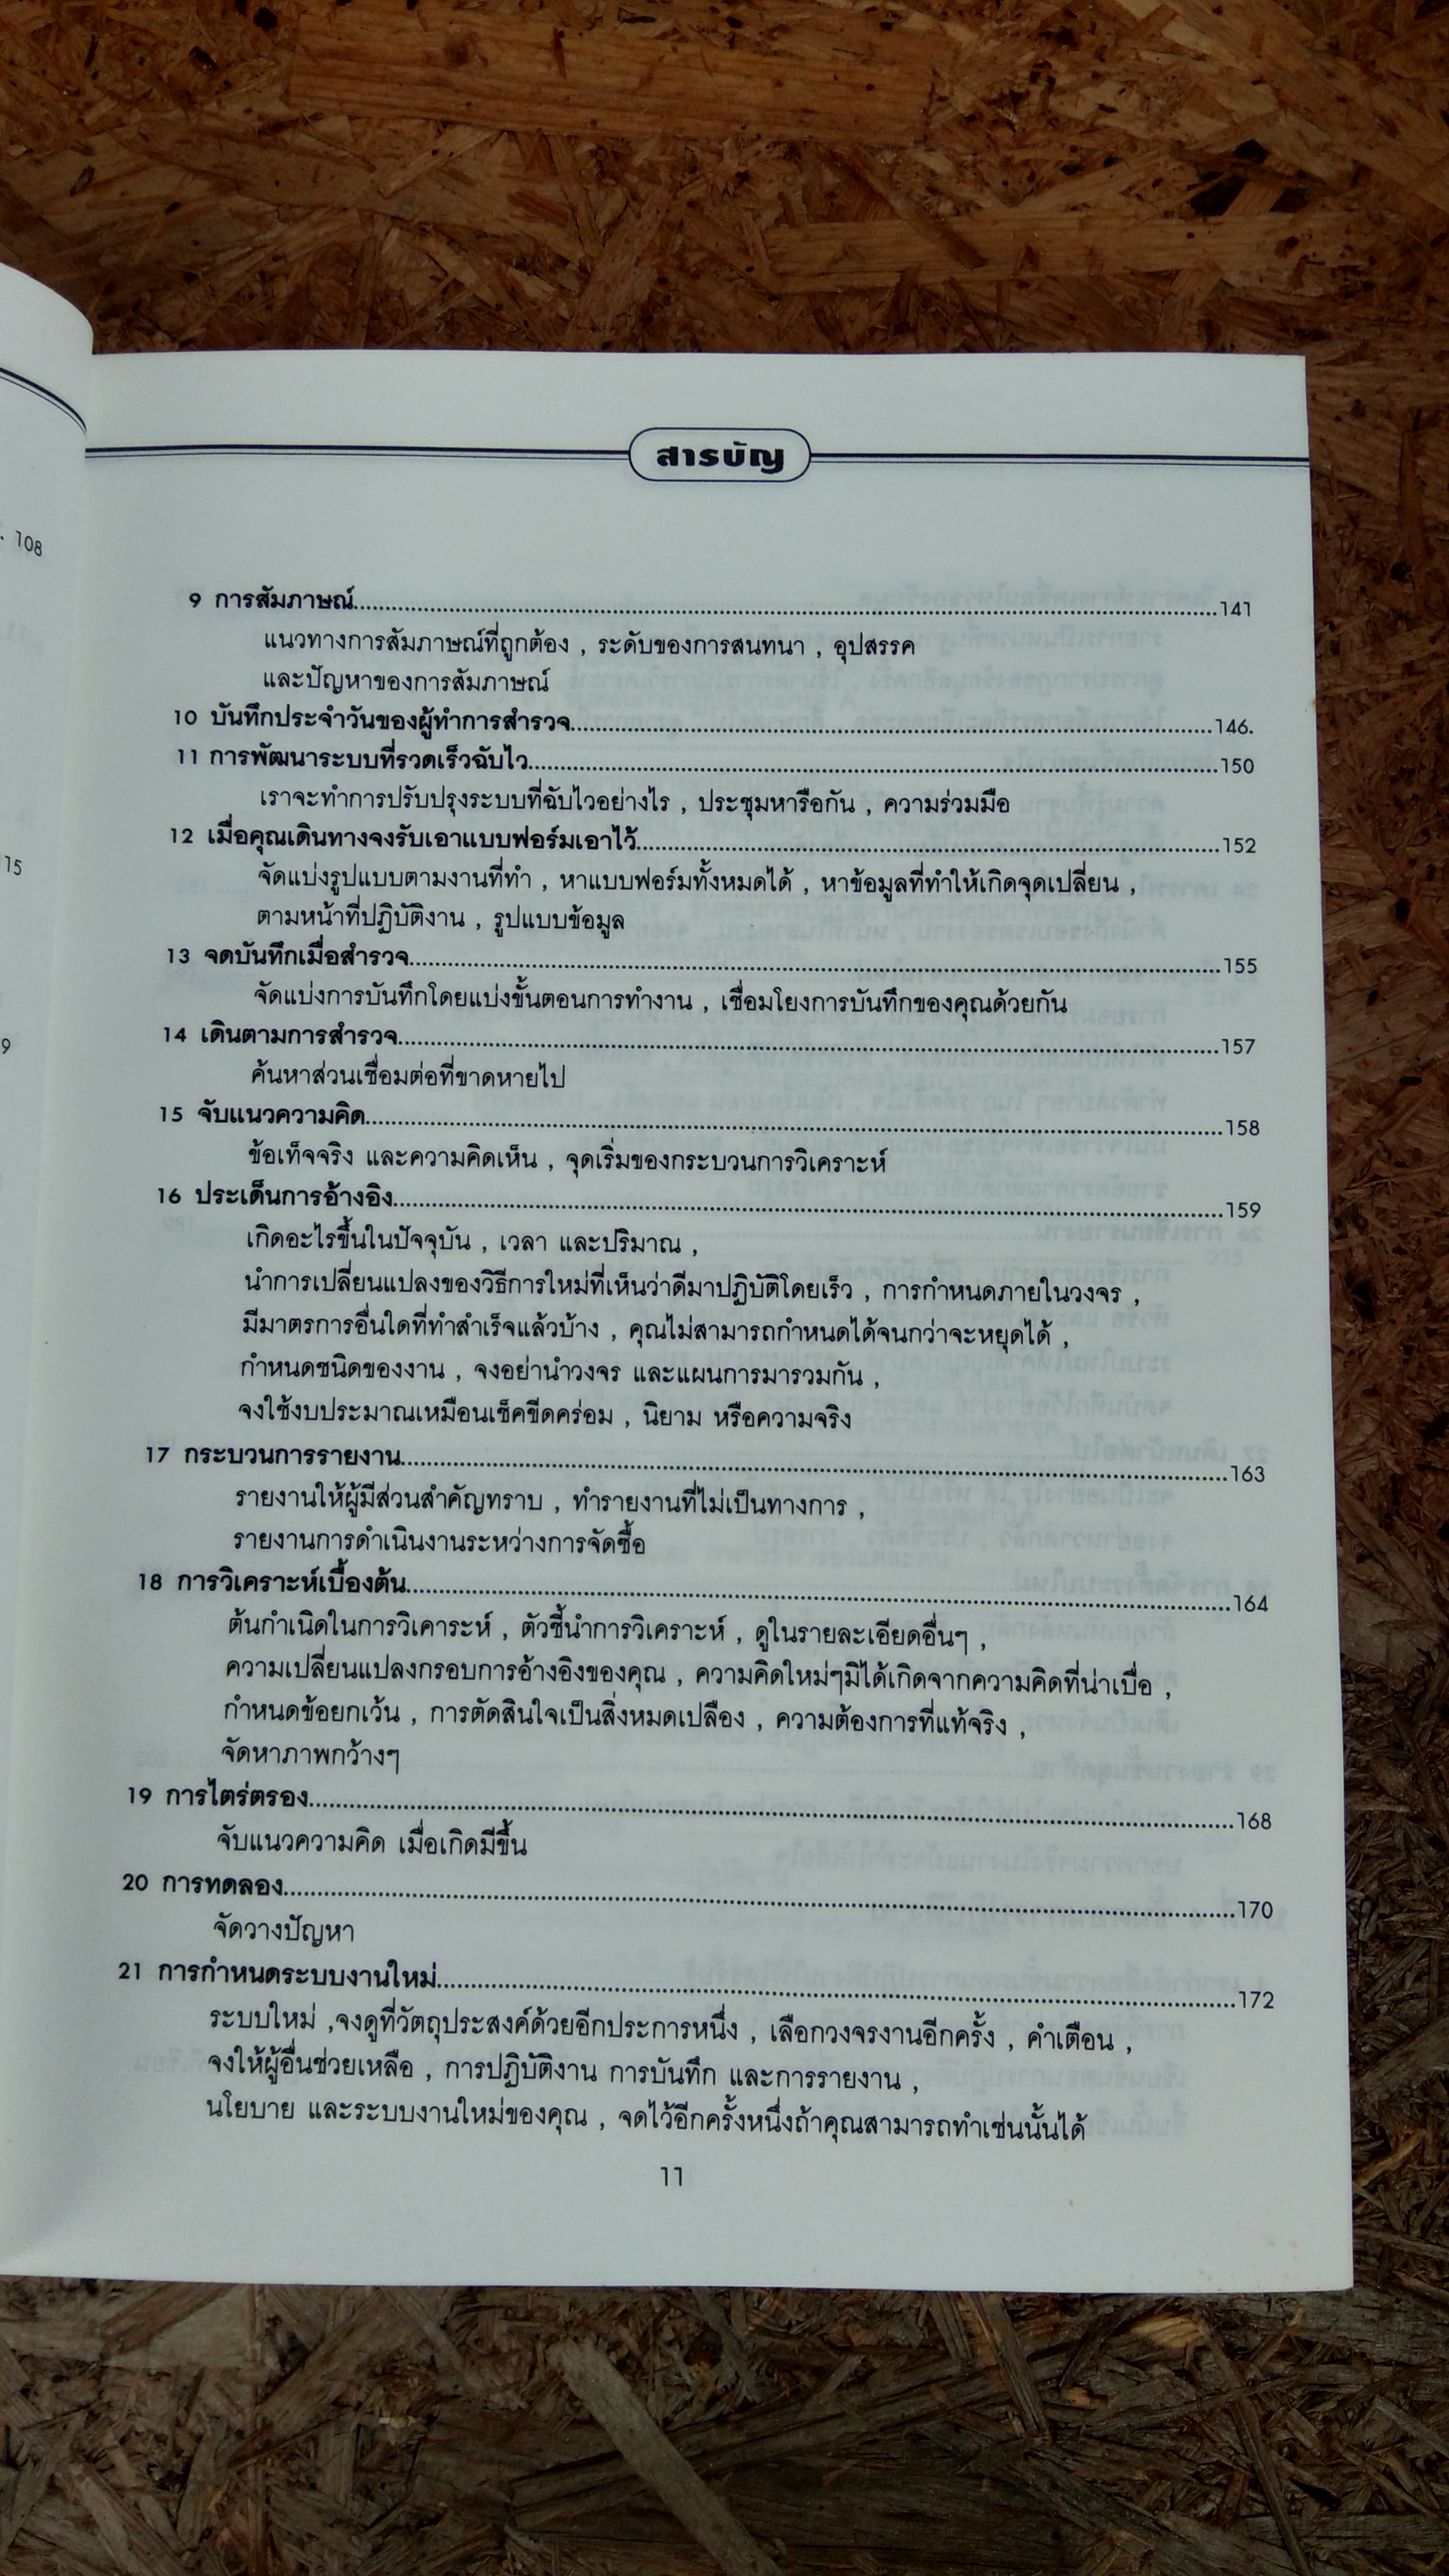 108
15
9
สารบัญ
9 การสัมภาษณ์.....141
แนวทางการสัมภาษณ์ที่ถูกต้อง , ระดับของการสนทนา , อุปสรรค
และปัญหาของการสัมภาษณ์
10 บันทึกประจำวันของผู้ทำการสำรวจ.....146.
11 การพัฒนาระบบที่รวดเร็วฉับไว.....150
เราจะทำการปรับปรุงระบบที่ฉับไวอย่างไร , ประชุมหารือกัน , ความร่วมมือ
12 เมื่อคุณเดินทางจงรับเอาแบบฟอร์มเอาไว้.....152
จัดแบ่งรูปแบบตามงานที่ทำ , หาแบบฟอร์มทั้งหมดได้ , หาข้อมูลที่ทำให้เกิดจุดเปลี่ยน ,
ตามหน้าที่ปฏิบัติงาน , รูปแบบข้อมูล
13 จดบันทึกเมื่อสำรวจ.....155
จัดแบ่งการบันทึกโดยแบ่งขั้นตอนการทำงาน , เชื่อมโยงการบันทึกของคุณด้วยกัน
14 เดินตามการสำรวจ.....157
ค้นหาส่วนเชื่อมต่อที่ขาดหายไป
15 จับแนวความคิด.....158
ข้อเท็จจริง และความคิดเห็น , จุดเริ่มของกระบวนการวิเคราะห์
16 ประเด็นการอ้างอิง.....159
เกิดอะไรขึ้นในปัจจุบัน , เวลา และปริมาณ ,
นำการเปลี่ยนแปลงของวิธีการใหม่ที่เห็นว่าดีมาปฏิบัติโดยเร็ว , การกำหนดภายในวงจร ,
มีมาตรการอื่นใดที่ทำสำเร็จแล้วบ้าง , คุณไม่สามารถกำหนดได้จนกว่าจะหยุดได้ ,
กำหนดชนิดของงาน , จงอย่านำวงจร และแผนการมารวมกัน ,
จงใช้งบประมาณเหมือนเช็คขีดคร่อม , นิยาม หรือความจริง
17 กระบวนการรายงาน.....163
รายงานให้ผู้มีส่วนสำคัญทราบ , ทำรายงานที่ไม่เป็นทางการ ,
รายงานการดำเนินงานระหว่างการจัดซื้อ
18 การวิเคราะห์เบื้องต้น.....164
ต้นกำเนิดในการวิเคาระห์ , ตัวชี้นำการวิเคราะห์ , ดูในรายละเอียดอื่นๆ ,
ความเปลี่ยนแปลงกรอบการอ้างอิงของคุณ , ความคิดใหม่ๆมิได้เกิดจากความคิดที่น่าเบื่อ ,
กำหนดข้อยกเว้น , การตัดสินใจเป็นสิ่งหมดเปลือง , ความต้องการที่แท้จริง ,
จัดหาภาพกว้างๆ
19 การไตร่ตรอง.....168
จับแนวความคิด เมื่อเกิดมีขึ้น
20 การทดลอง.....170
จัดวางปัญหา
21 การกำหนดระบบงานใหม่.....172
ระบบใหม่ ,จงดูที่วัตถุประสงค์ด้วยอีกประการหนึ่ง , เลือกวงจรงานอีกครั้ง , คำเตือน ,
จงให้ผู้อื่นช่วยเหลือ , การปฏิบัติงาน การบันทึก และการรายงาน ,
นโยบาย และระบบงานใหม่ของคุณ , จดไว้อีกครั้งหนึ่งถ้าคุณสามารถทำเช่นนั้นได้
11